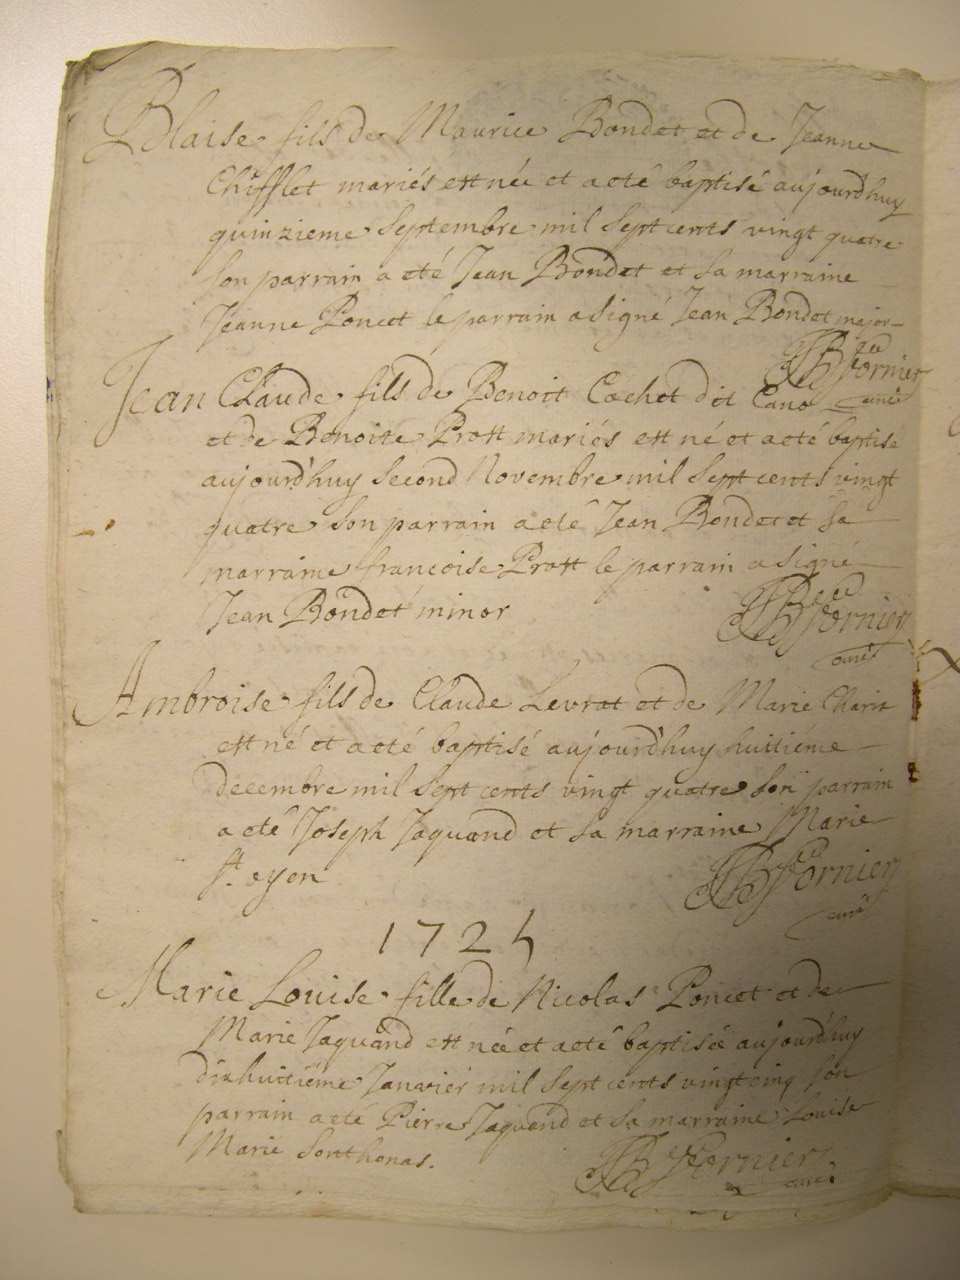 Blaise fils de Maurice Bondet et de Jeanne
Chifflet mariés est née et a eté baptisé aujourd'huy
quinzieme Septembre mil Sept cents vingt quatre
Son parrain a eté Jean Bondet et Sa marraine
Jeanne Poncet le parrain a Signé Jean Bondet major
JB Fornier
curé
Jean Claude fils de Benoit Cochet dit Cano
et de Benoite Prost mariés est né et a eté baptise
aujourd'huy Second Novembre mil Sept cents vingt
quatre Son parrain a eté Jean Bondet et Sa
marraine francoise Prost le parrain a Signé
Jean Bondet minor
JB Fornier
curé
Ambroise fils de Claude Levrat et de Marie
est né et a eté baptisé aujourd'huy huitiéme
decembre mil Sept cents vingt quatre Son parrain
a eté Joseph Jaquand et Sa marraine Marie
St. oyen
JB Fornier
curé
1725
Marie Louise fille de Nicolas Poncet et de
Marie Jaquand est née et a eté baptisée aujourd'huy
dixhuitiéme Janvier mil Sept cents vingt cinq Son
parrain a eté Pierre Jaquand et Sa marraine Louise
Marie Sonthonas.
JB Fornier
curé